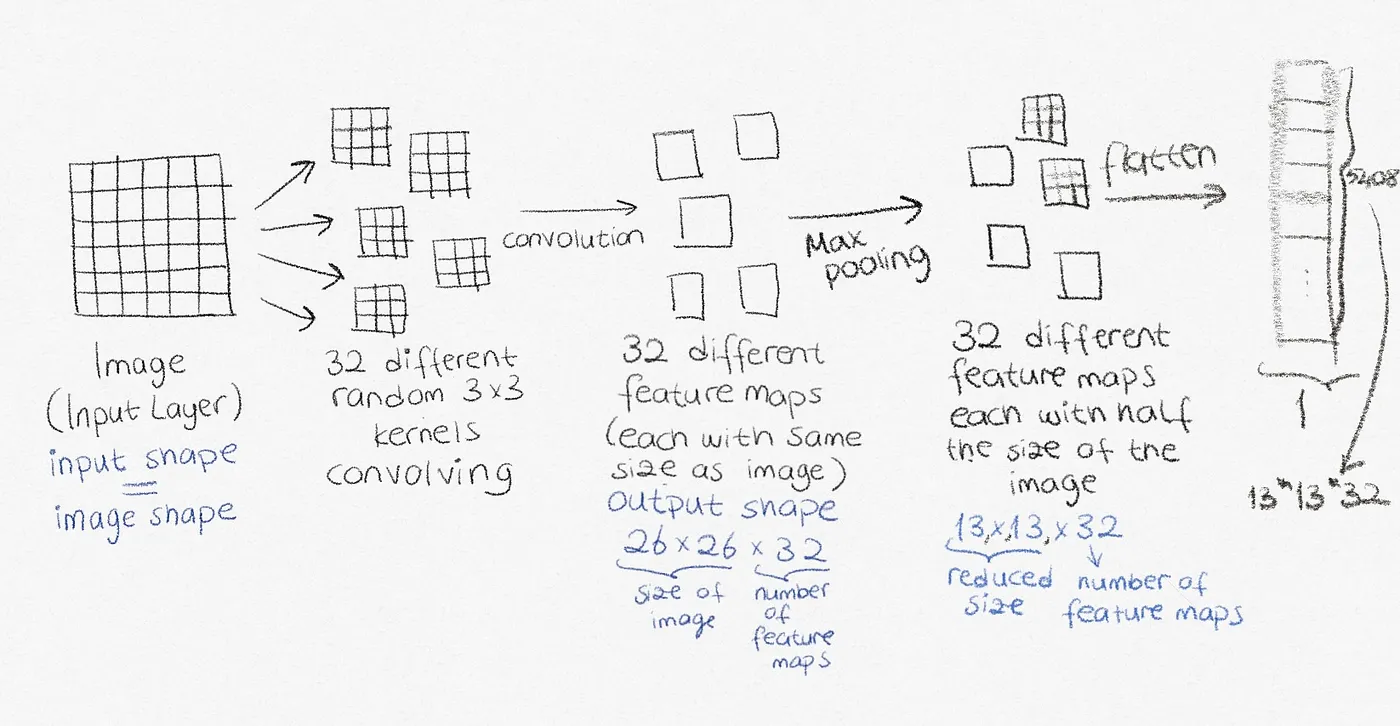 Image
(Input Layer)
input shape
=
image shape
32 different
random 3x3
kernels
convolving
convolution
32 different
feature maps
(each with same
size as image)
output shape
26 x 26 x 32
size of
image
number
of
feature
maps
Max
pooling
32 different
feature maps
each with half
the size of the
image
13 x 13 x 32
reduced
size
number of
feature maps
flatten
52,08
1
13*13*32